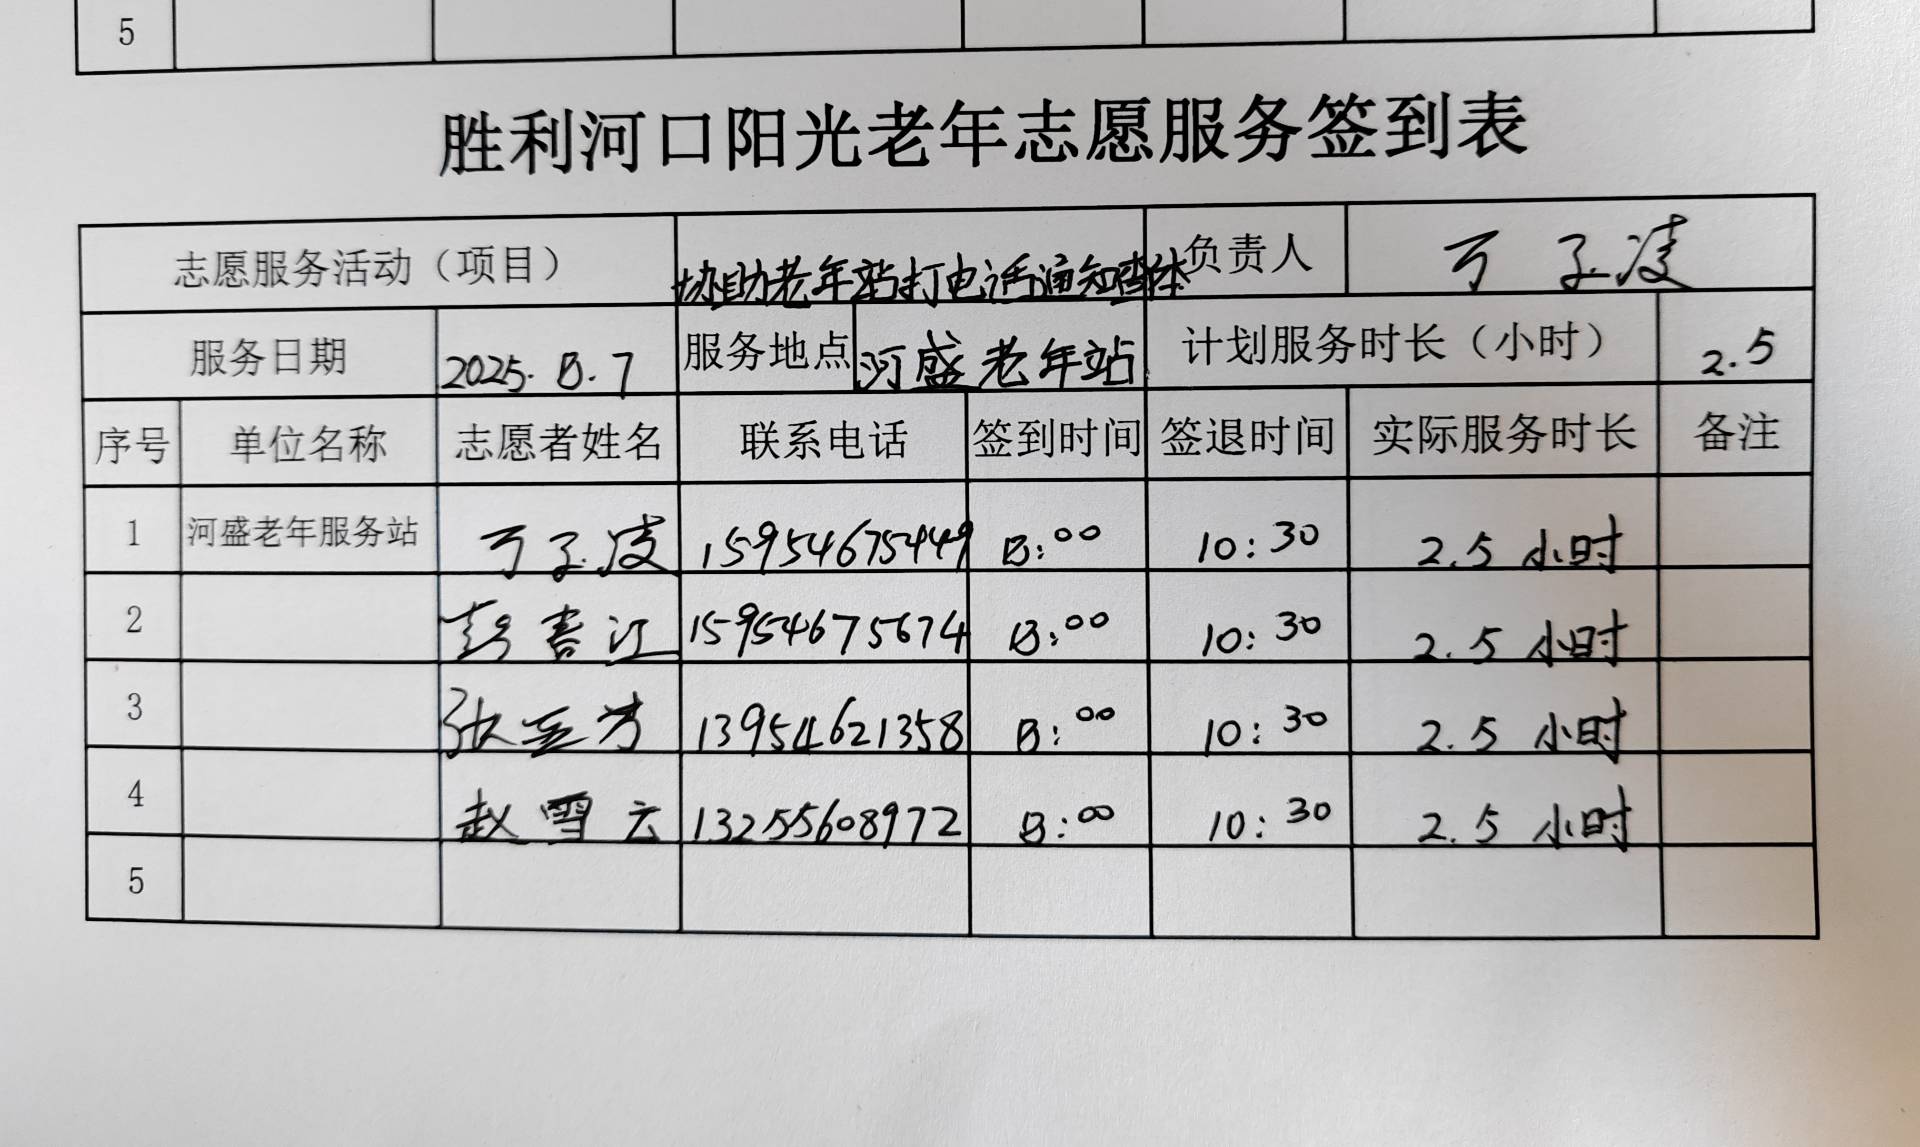 5
胜利河口阳光老年志愿服务签到表
志愿服务活动（项目） 协助老年站打电话通知查体 负责人 丁子凌
服务日期 2025.8.7 服务地点 河盛老年站 计划服务时长（小时） 2.5
序号 单位名称 志愿者姓名 联系电话 签到时间 签退时间 实际服务时长 备注
1 河盛老年服务站 丁子凌 15954675449 8:00 10:30 2.5 小时
2 彭春江 15954675674 8:00 10:30 2.5 小时
3 张 13954621358 8:00 10:30 2.5 小时
4 赵雪云 13255608972 8:00 10:30 2.5 小时
5